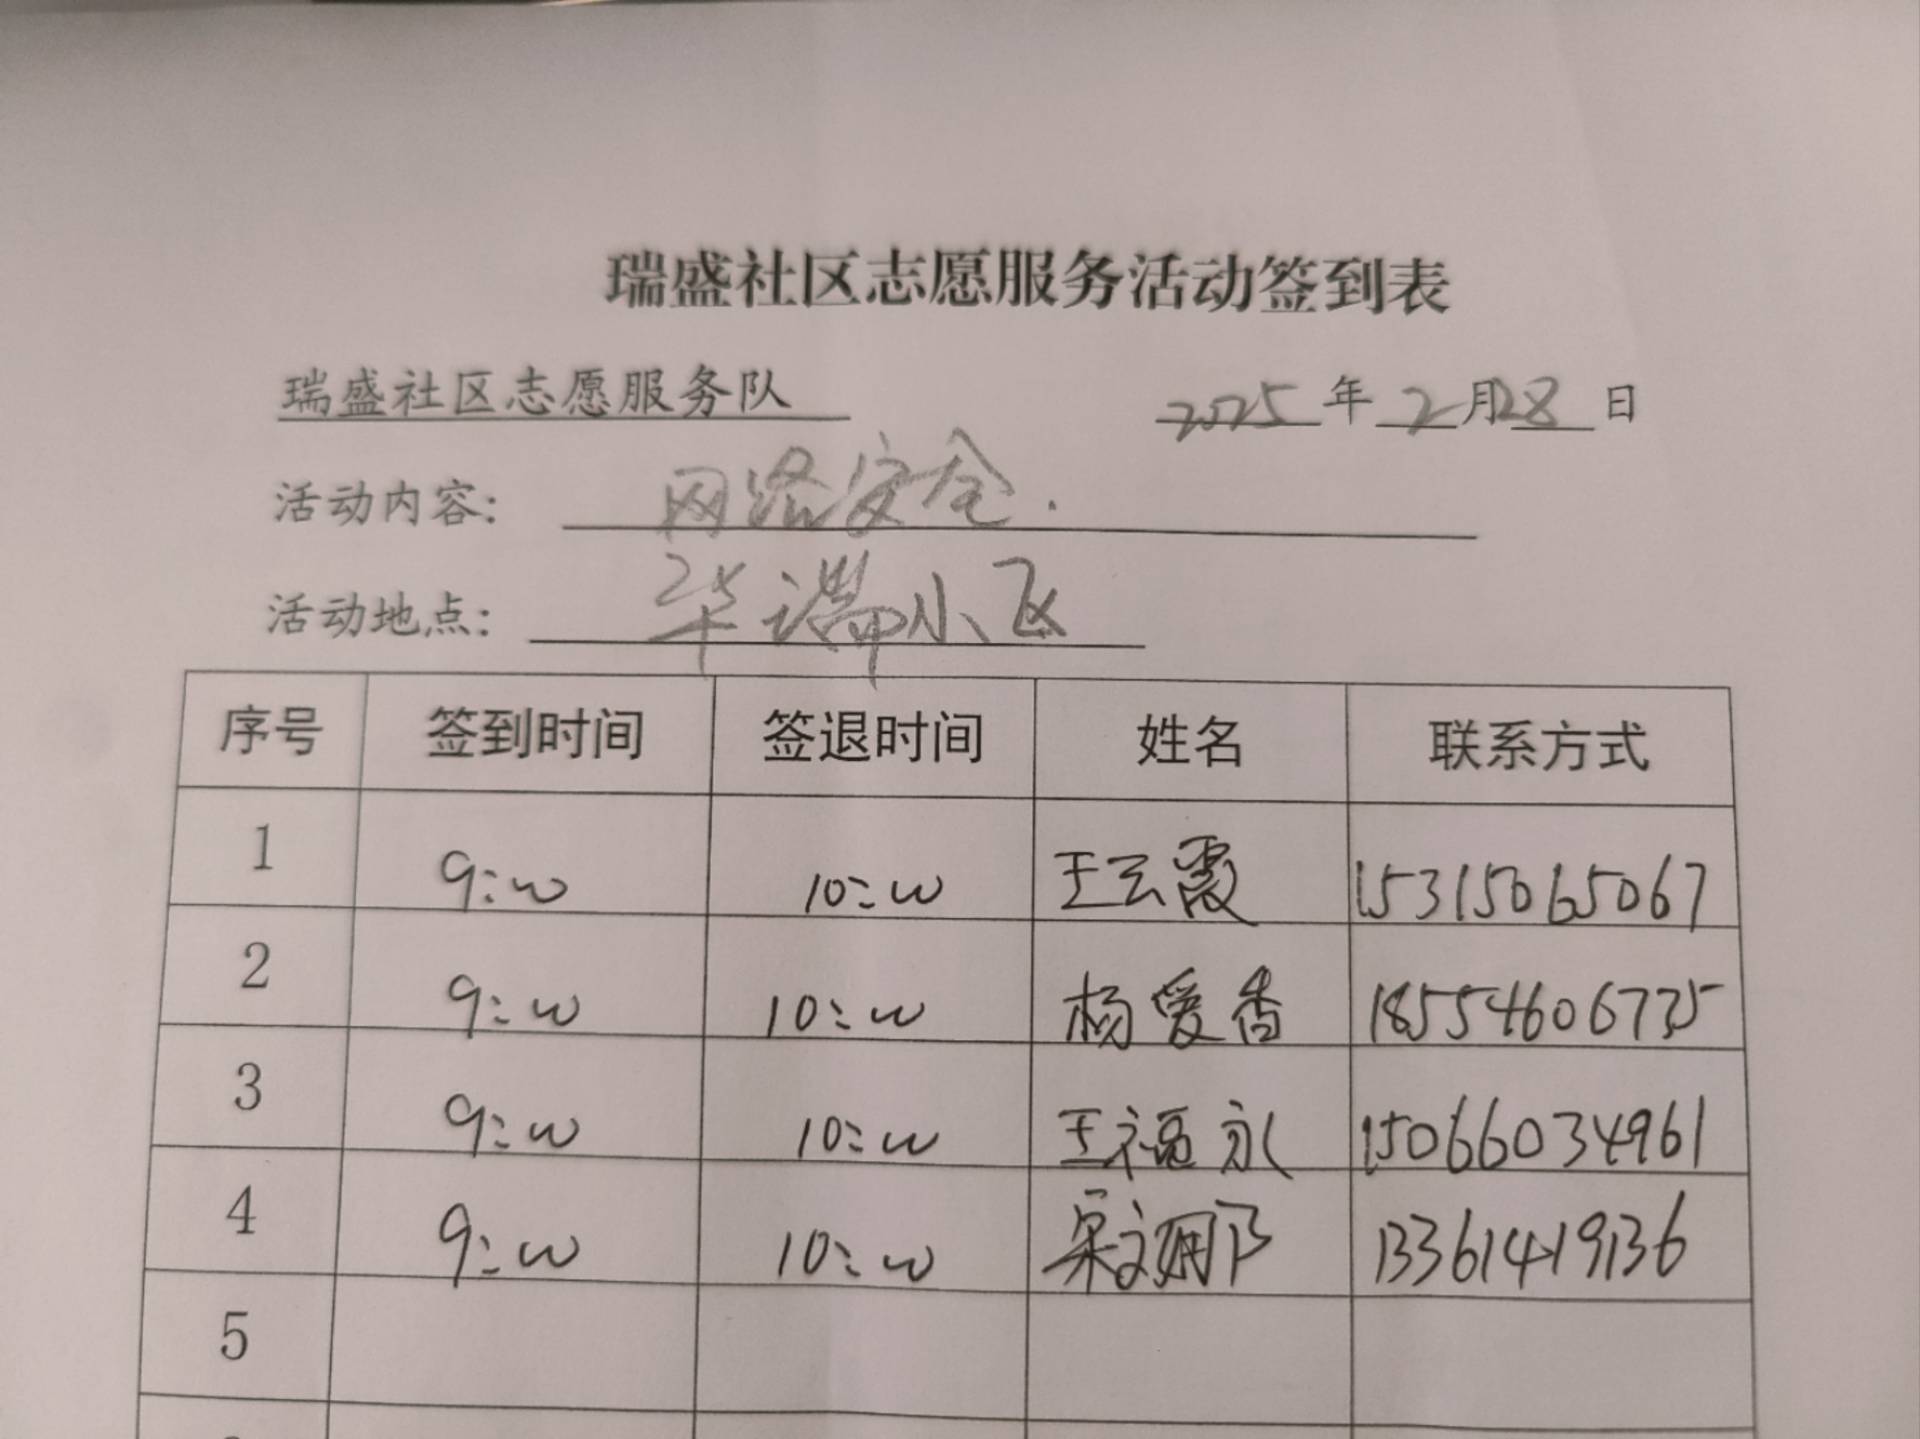 瑞盛社区志愿服务活动签到表
瑞盛社区志愿服务队 2025年2月28日
活动内容: 网络安全.
活动地点: 华瑞小区
序号 签到时间 签退时间 姓名 联系方式
1 9:00 10:00 王云霞 15315065067
2 9:00 10:00 杨爱香 18554606735
3 9:00 10:00 王福永 15066034961
4 9:00 10:00 13361419136
5